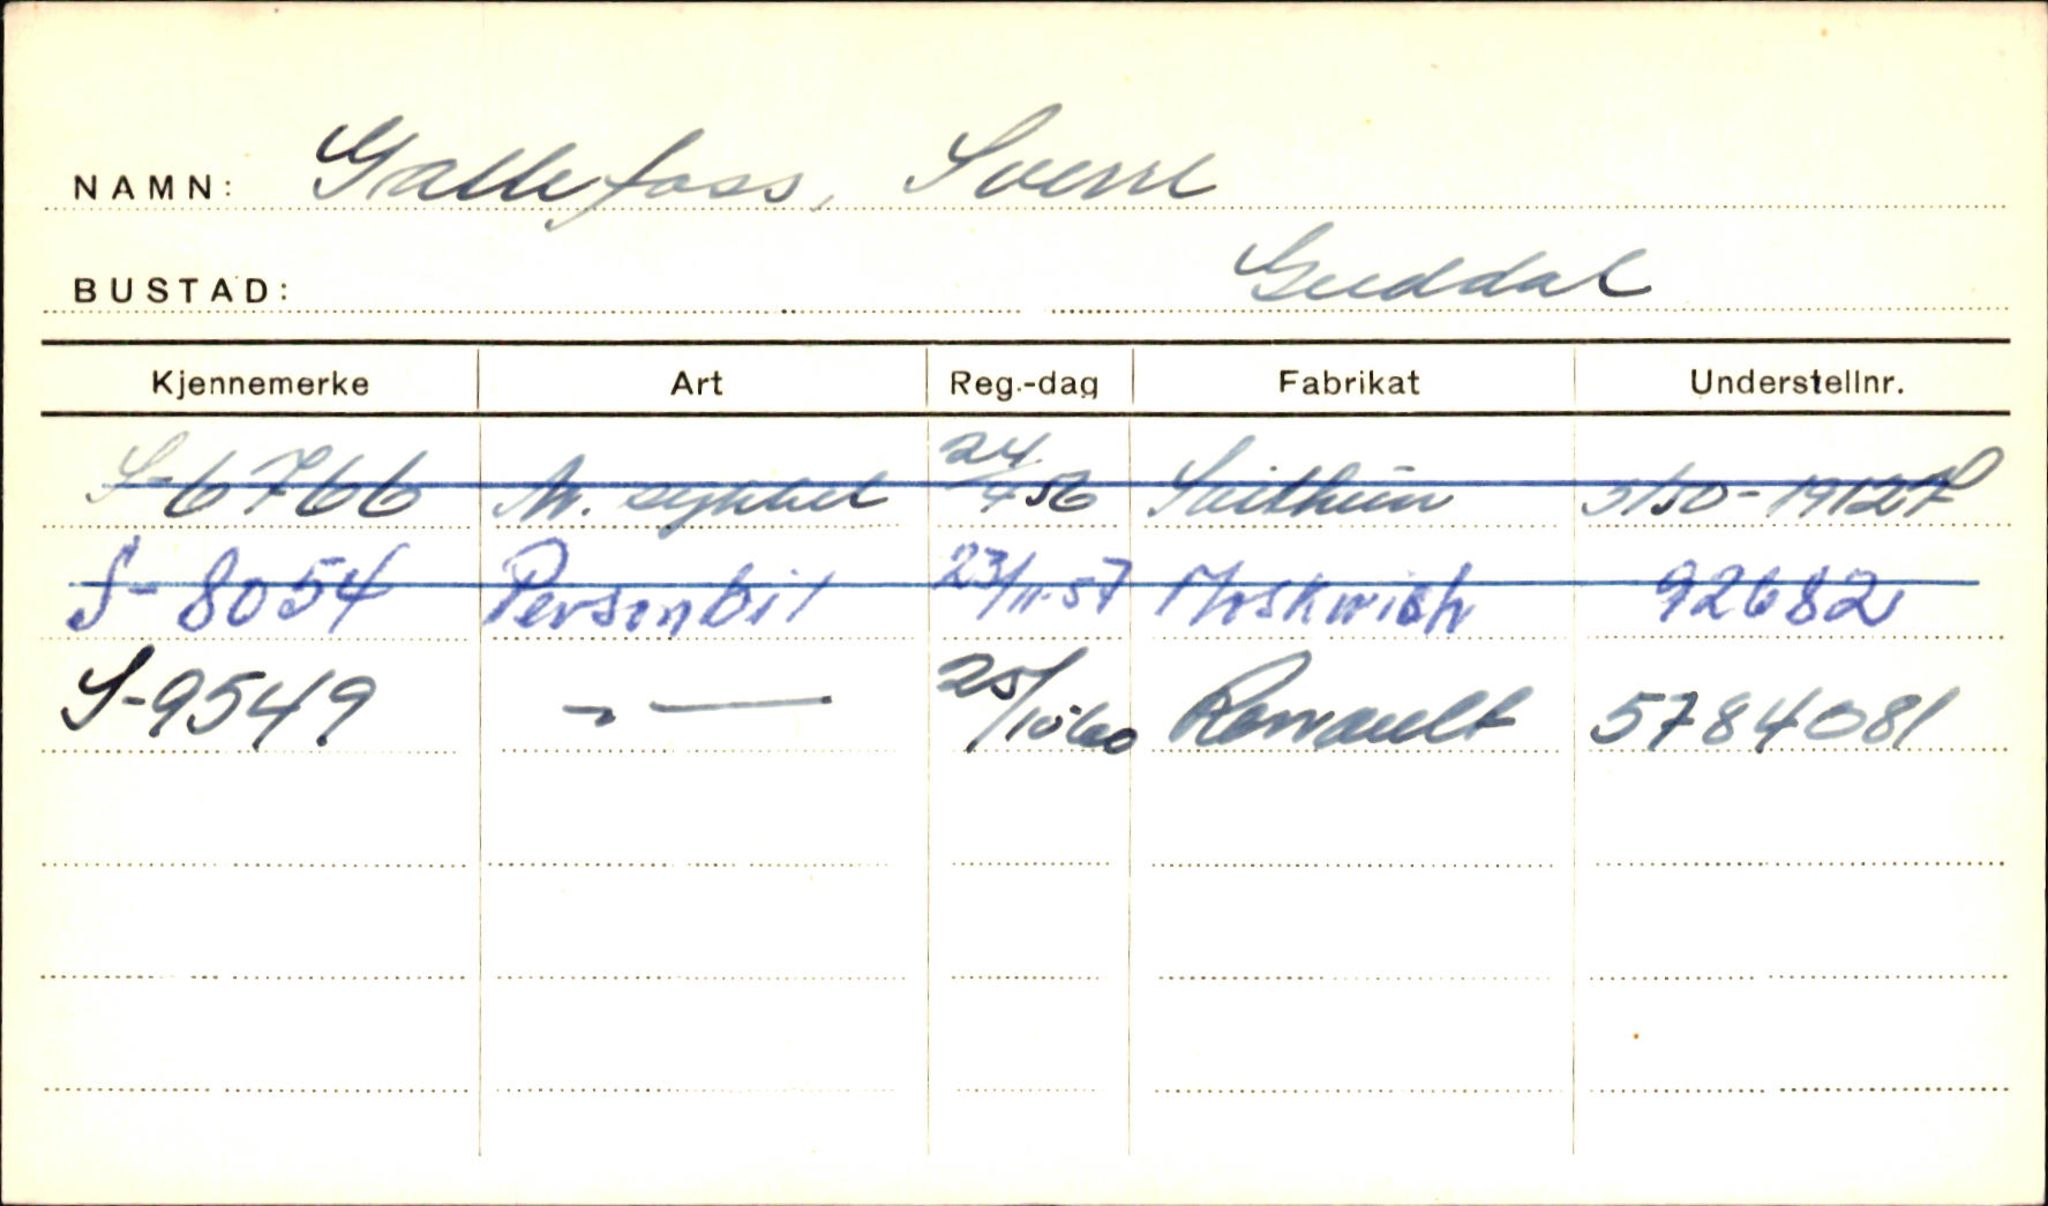 NAMN: Gallefoss, Sverre
BUSTAD: Guddal
Kjennemerke Art Reg.-dag Fabrikat Understellnr.
S-6766 M. sykkel 24/4 56 Svithun 5/50-19127
S-8054 Personbil 23/11-57 Moskwich 92682
S-9549 -„- 25/10 60 Renault 5784081